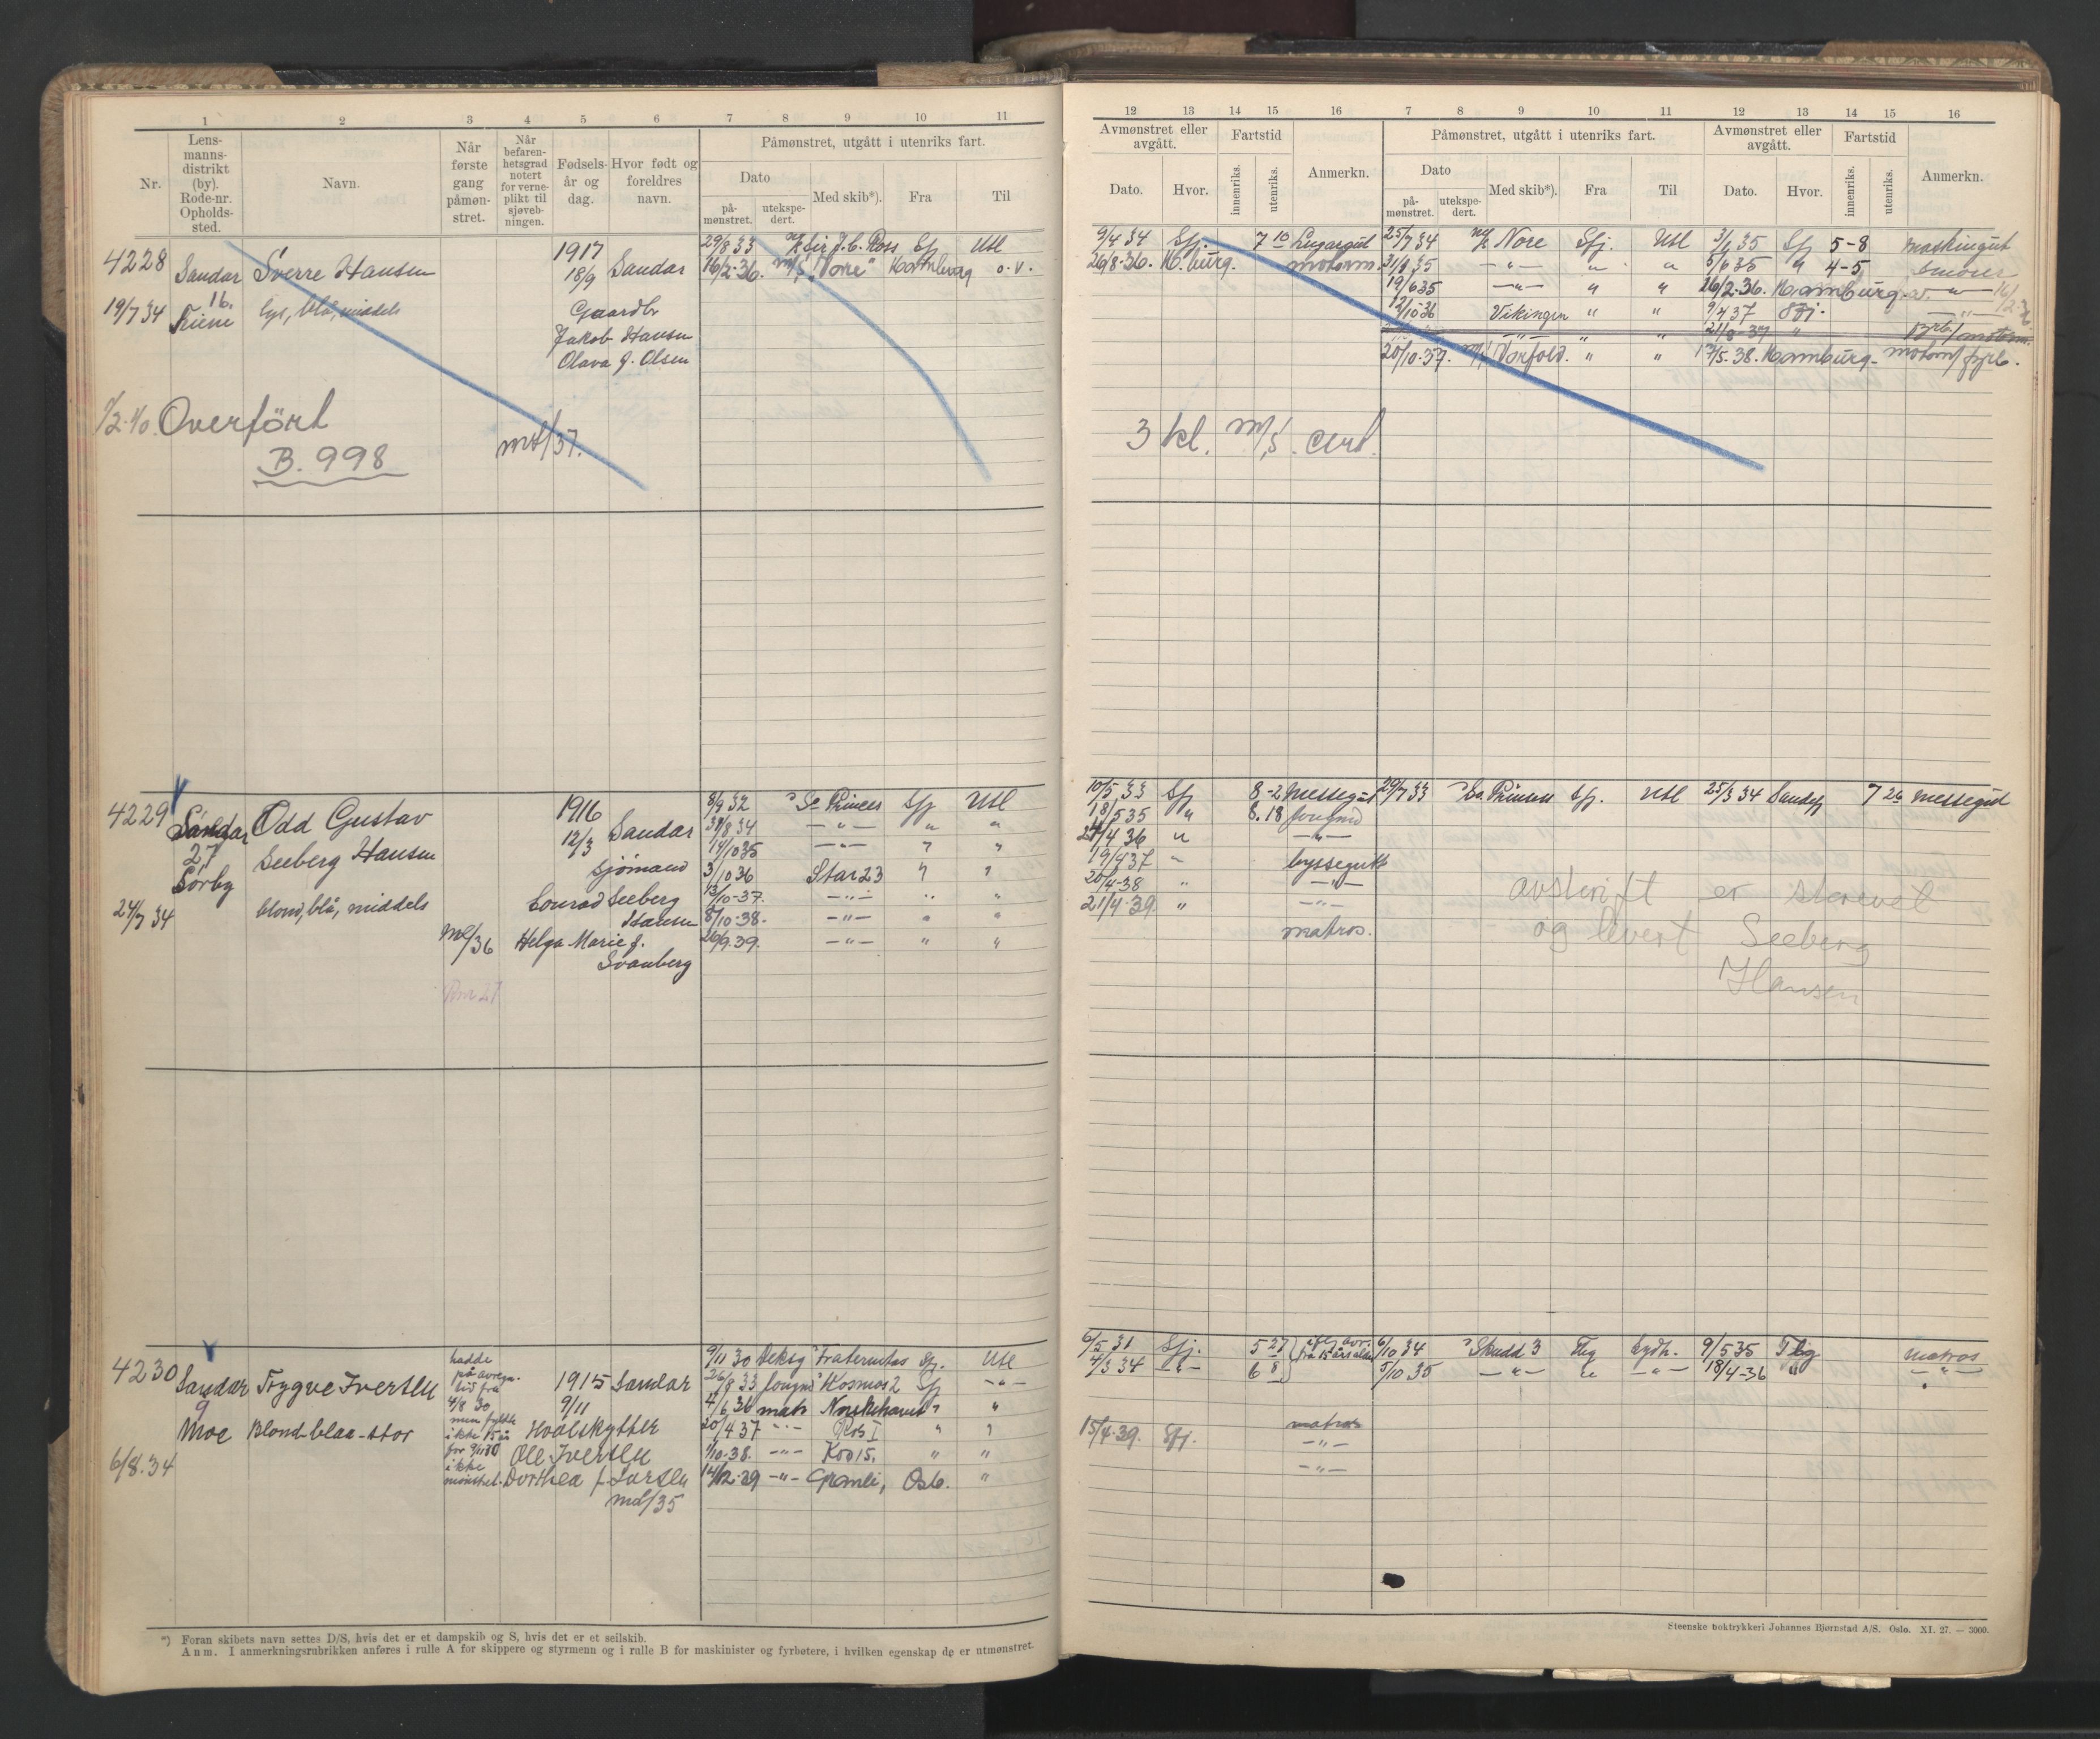 1 2 3 4 5 6 7 8 9 10 11
Nr.
Lens-
manns-
distrikt
(by).
Rode-nr.
Opholds-
sted.
Navn.
Når
første
gang
påmøn-
stret.
Når
befaren-
hetsgrad
notert
for verne-
plikt til
sjøveb-
ningen.
Fødsels-
år og
dag.
Hvor født og
foreldres
navn.
Påmønstret, utgått i utenriks fart.
Dato
på-
mønstret.
utekspe-
dert.
Med skib*).
Fra
Til
4228 Sandar Sverre Hansen 1917 18/9 Sandar
19/7 34 16. lys, blå, middels Gaardbr
Jakob Hansen
Olava f. Olsen
29/8 33 Sir J. C. Ross Sfj Utl
16/2-36. m/s "Nore" Hamburg o.v.
1/2-40. Overført
B. 998
mdl/37.
4229 Sandar Odd Gustav 1916
27 Seeberg Hansen 12/3 Sandar
Sörby Sjömand
24/7 34 blond, blå, middels Conrad Seeberg
Hansen
Helga Marie f.
Svanberg
8/9 32 So Princes Sfj Utl
31/8 34 —"— " "
14/10 35 —"— " "
3/10 36 Star 23 " "
13/10-37. —"— " "
8/10-38. —"— " "
26/9.39. —"— " "
4230 Sandar Trygve Iversen 1915 Sandar
9 9/11
Moe Blond-blaa-stor Hvalskytter
6/8.34 Ole Iversen
Dorthea f. Larsen
mdl/35
hadde
på avregn.
tid fra
4/8 30
men fyldte
ikke 15 år
før 9/11 30
ikke
mønstret.
9/11 30 Fraternitas Sfj. Utl
26/8 33 Kosmos 2 Sfj —"—
4/6 36 matr " "
20/4 37 —"— Ros I " "
1/10-38. —"— Kos 15. " "
14/12-39 —"— Granli, Oslo. "
*) Foran skibets navn settes D/S, hvis det er et dampskib og S, hvis det er et seilskib.
Anm. I anmerkningsrubrikken anføres i rulle A for skippere og styrmenn og i rulle B for maskinister og fyrbøtere, i hvilken egenskap de er utmønstret.
12 13 14 15 16 7 8 9 10 11 12 13 14 15 16
Avmønstret eller
avgått.
Dato.
Hvor.
Fartstid
innenriks.
utenriks.
Anmerkn.
Påmønstret, utgått i utenriks fart.
Dato
på-
mønstret.
utekspe-
dert.
Med skib*).
Fra
Til
Avmønstret eller
avgått.
Dato.
Hvor.
Fartstid
innenriks.
utenriks.
Anmerkn.
9/4 34 Sfj. 7 10 Lugargut 25/7 34 Nore Sfj. Utl 3/1 35 Sfj 5-8 maskingut
26/8-36. H.burg. motorm. 31/8 35 —"— " " 5/6 35 " 4-5 smører
19/6 35 —"— " " 26/2-36. Hamburg
12/10 36 Vikingen " " 9/4 37 Sfj.
20/10-37. m/s Norfold. " " 17/5-38. Hamburg- motorm/fyrb.
3 kl. m/s. cert.
10/5 33 Sfj 8-2 Messegut 29/7 33 So. Princess Sfj. Utl 25/3 34 Sandefj 7 26 messegut
18/5 35 " 8.18 jungm
21/4 36 " —"—
19/4 37 " byssegutt
20/4-38 " —"—
21/4-39. " —"—
matros.
avskrift er skrevet
og levert Seeberg
Hansen
6/5 31 Sfj. 5 27 6/10 34 Skudd 3 Tbg Sydh. 9/5 35 Tbg matros
4/3 34 —"— 6 8 5/10 35 —"— " —"— 18/4-36 " —"—
matros
15/4-39. Sfj. —"—
—"—
Steenske boktrykkeri Johannes Bjørnstad A/S. Oslo. XI. 27. — 3000.